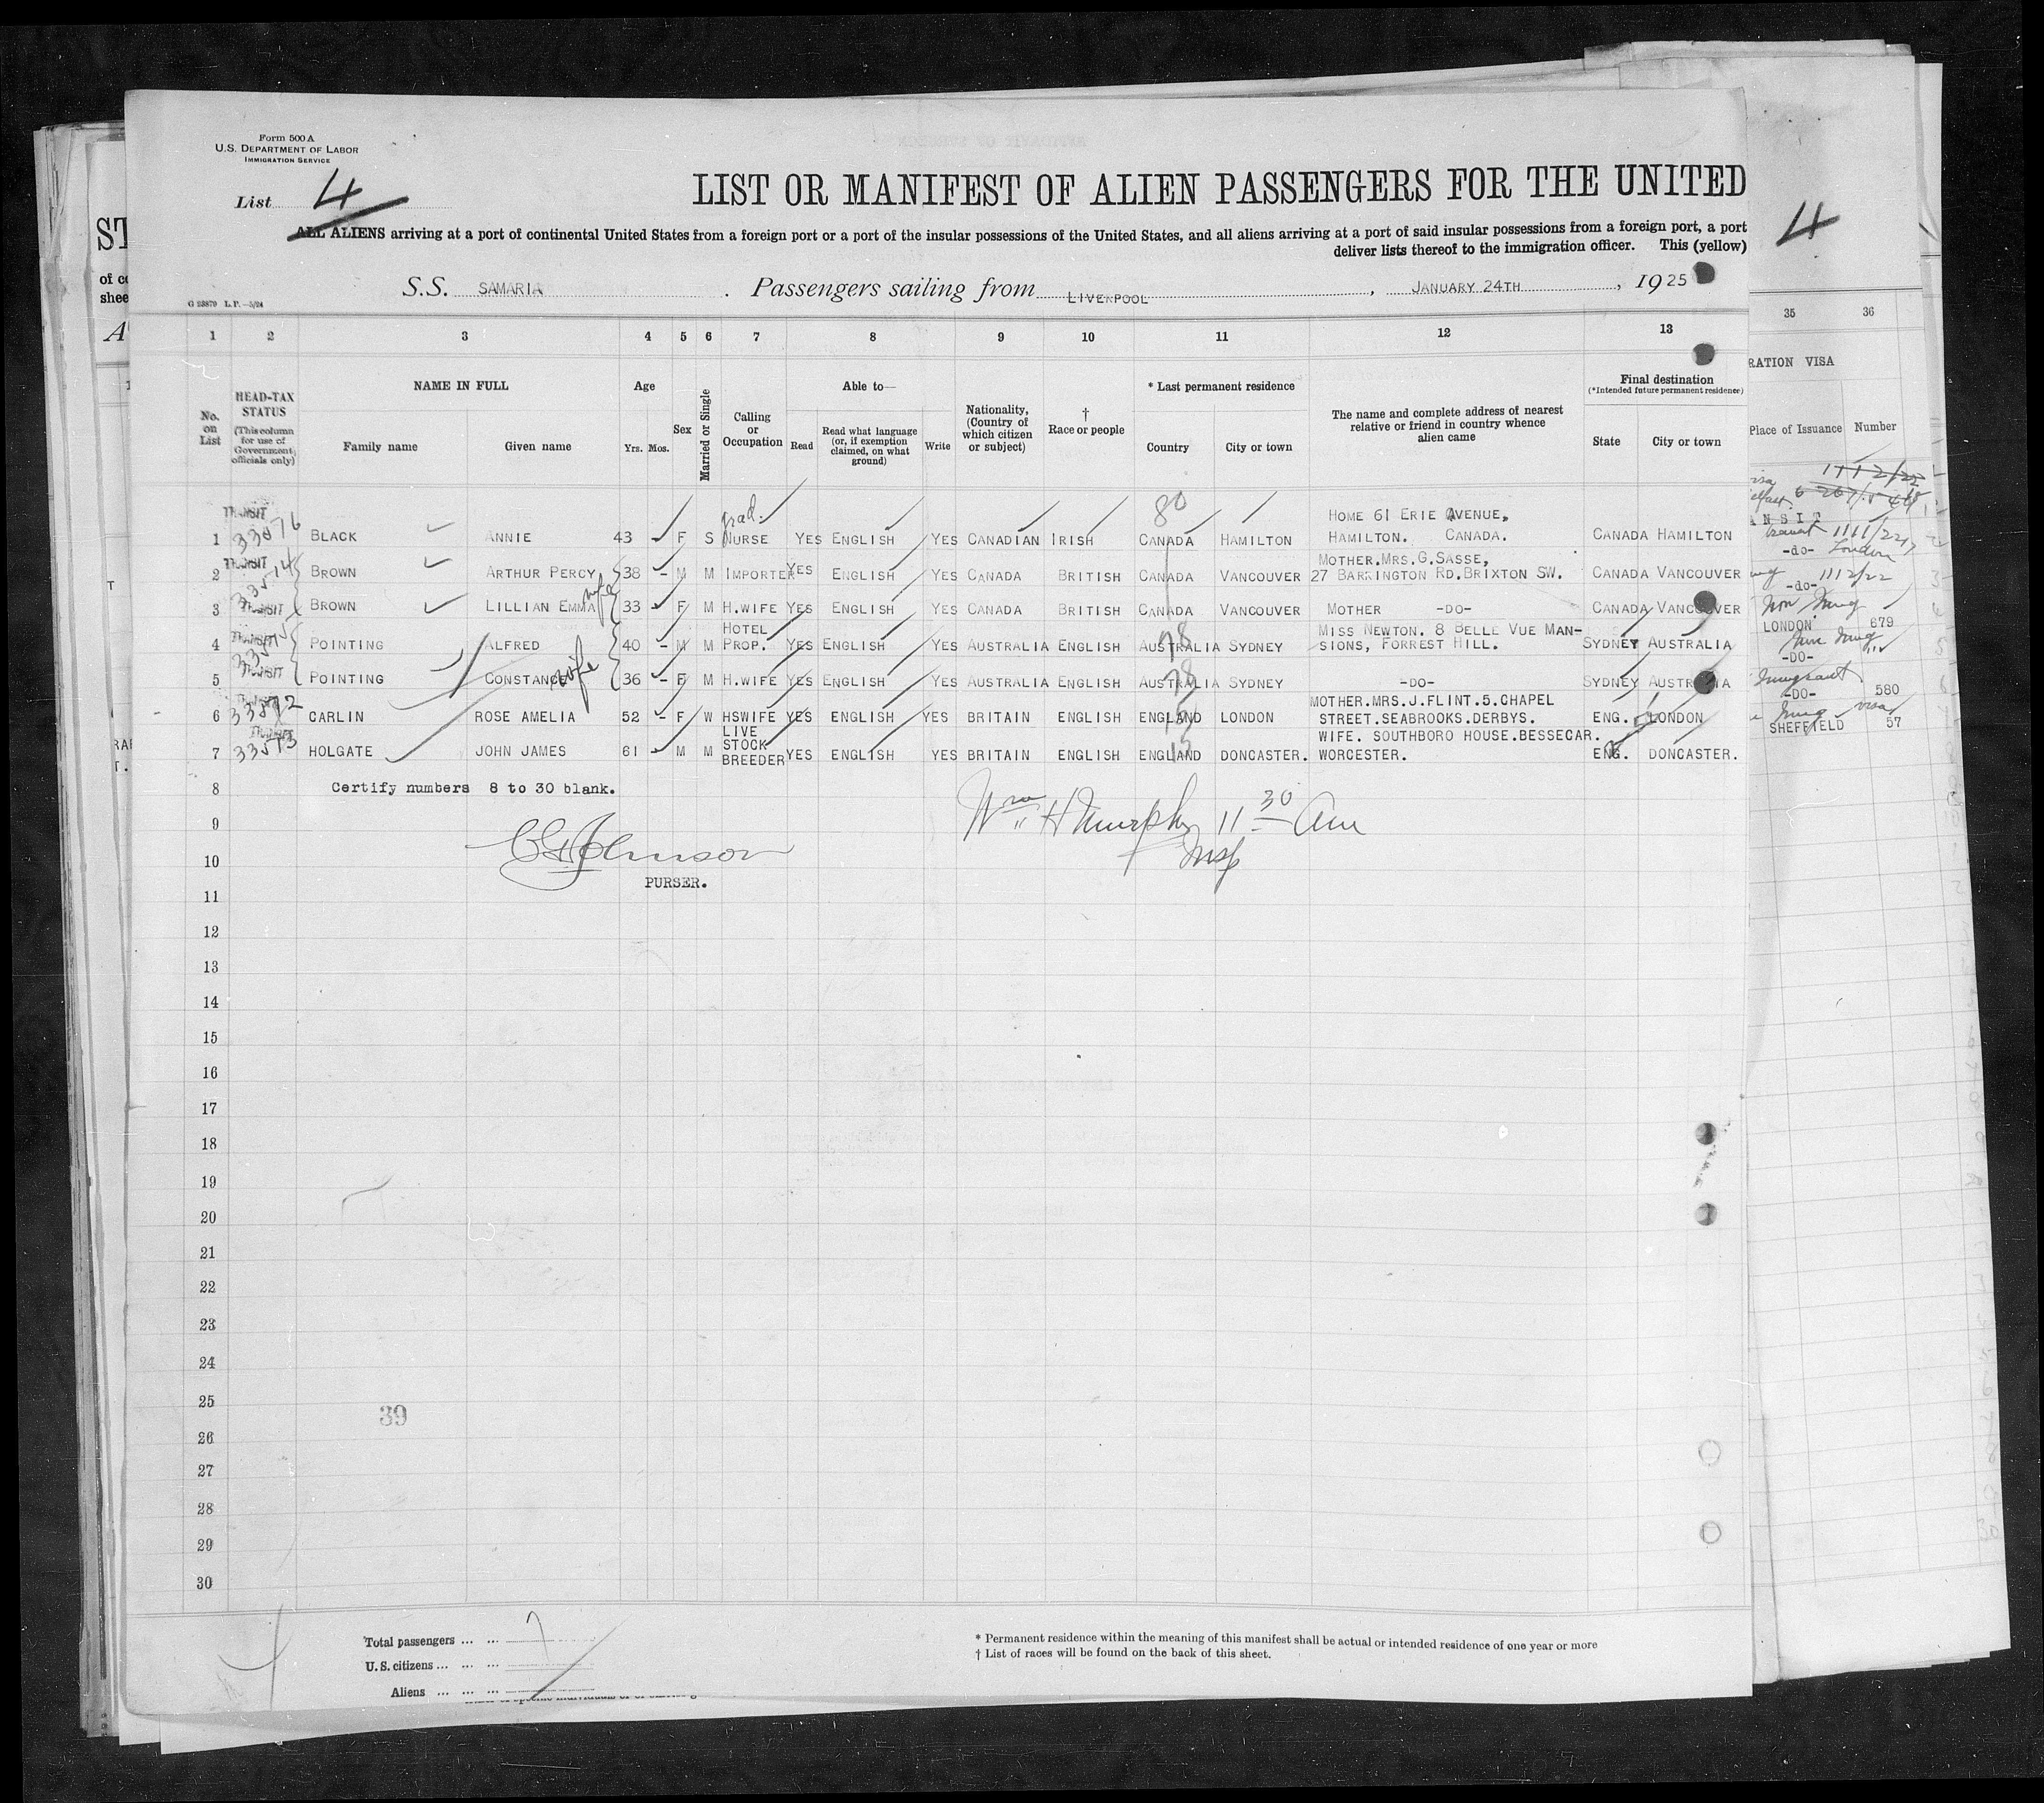 Form 500 A
U.S. DEPARTMENT OF LABOR
IMMIGRATION SERVICE
List 4
LIST OR MANIFEST OF ALIEN PASSENGERS FOR THE UNITED
ALL ALIENS arriving at a port of continental United States from a foreign port or a port of the insular possessions of the United States, and all aliens arriving at a port of said insular possessions from a foreign port, a port
deliver lists thereof to the immigration officer. This (yellow)
4
ST
of co
shee
G 23879 L.P.—5/24
S.S. SAMARIA. Passengers sailing from LIVERPOOL, JANUARY 24TH, 1925
1 2 3 4 5 6 7 8 9 10 11 12 13 35 36
HEAD-TAX STATUS (This column for use of Government officials only)
No. on List
NAME IN FULL
Family name Given name
Age
Yrs. Mos.
Sex
Married or Single
Calling or Occupation
Able to—
Read
Read what language (or, if exemption claimed, on what ground)
Write
Nationality, (Country of which citizen or subject)
† Race or people
* Last permanent residence
Country City or town
The name and complete address of nearest relative or friend in country whence alien came
Final destination
(*Intended future permanent residence)
State City or town
RATION VISA
Place of Issuance Number
TRANSIT grad. 80 HOME 61 ERIE AVENUE,
1 33576 BLACK ANNIE 43 F S NURSE YES ENGLISH YES CANADIAN IRISH CANADA HAMILTON HAMILTON. CANADA. CANADA HAMILTON
TRANSIT MOTHER.MRS.G.SASSE,
2 33574 BROWN ARTHUR PERCY 38 - M M IMPORTER YES ENGLISH YES CANADA BRITISH CANADA VANCOUVER 27 BARRINGTON RD.BRIXTON SW. CANADA VANCOUVER
3 TRANSIT BROWN LILLIAN EMMA wife 33 F M H.WIFE YES ENGLISH YES CANADA BRITISH CANADA VANCOUVER MOTHER -DO- CANADA VANCOUVER
TRANSIT HOTEL MISS NEWTON. 8 BELLE VUE MAN-
4 33575 POINTING ALFRED 40 - M M PROP. YES ENGLISH YES AUSTRALIA ENGLISH AUSTRALIA SYDNEY SIONS, FORREST HILL. SYDNEY AUSTRALIA
5 TRANSIT POINTING CONSTANCE wife 36 - F M H.WIFE YES ENGLISH YES AUSTRALIA ENGLISH AUSTRALIA SYDNEY -DO- SYDNEY AUSTRALIA
MOTHER.MRS.J.FLINT.5.CHAPEL
6 33572 CARLIN ROSE AMELIA 52 - F W HSWIFE YES ENGLISH YES BRITAIN ENGLISH ENGLAND LONDON STREET.SEABROOKS.DERBYS. ENG. LONDON
TRANSIT LIVE STOCK BREEDER WIFE. SOUTHBORO HOUSE.BESSECAR.
7 33573 HOLGATE JOHN JAMES 61 M M YES ENGLISH YES BRITAIN ENGLISH ENGLAND DONCASTER. WORCESTER. ENG. DONCASTER.
ANSIT
-do- London
-do- 1112/22
LONDON 679
-DO-
-DO- 580
SHEFFIELD 57
8 Certify numbers 8 to 30 blank.
9 Wm H Murphy 11 30 Am
Insp
10 Johnson
PURSER.
11
12
13
14
15
16
17
18
19
20
21
22
23
24
25
39
26
27
28
29
30
Total passengers ... ... 7
U.S. citizens ... ... ...
Aliens ... ... ...
* Permanent residence within the meaning of this manifest shall be actual or intended residence of one year or more
† List of races will be found on the back of this sheet.